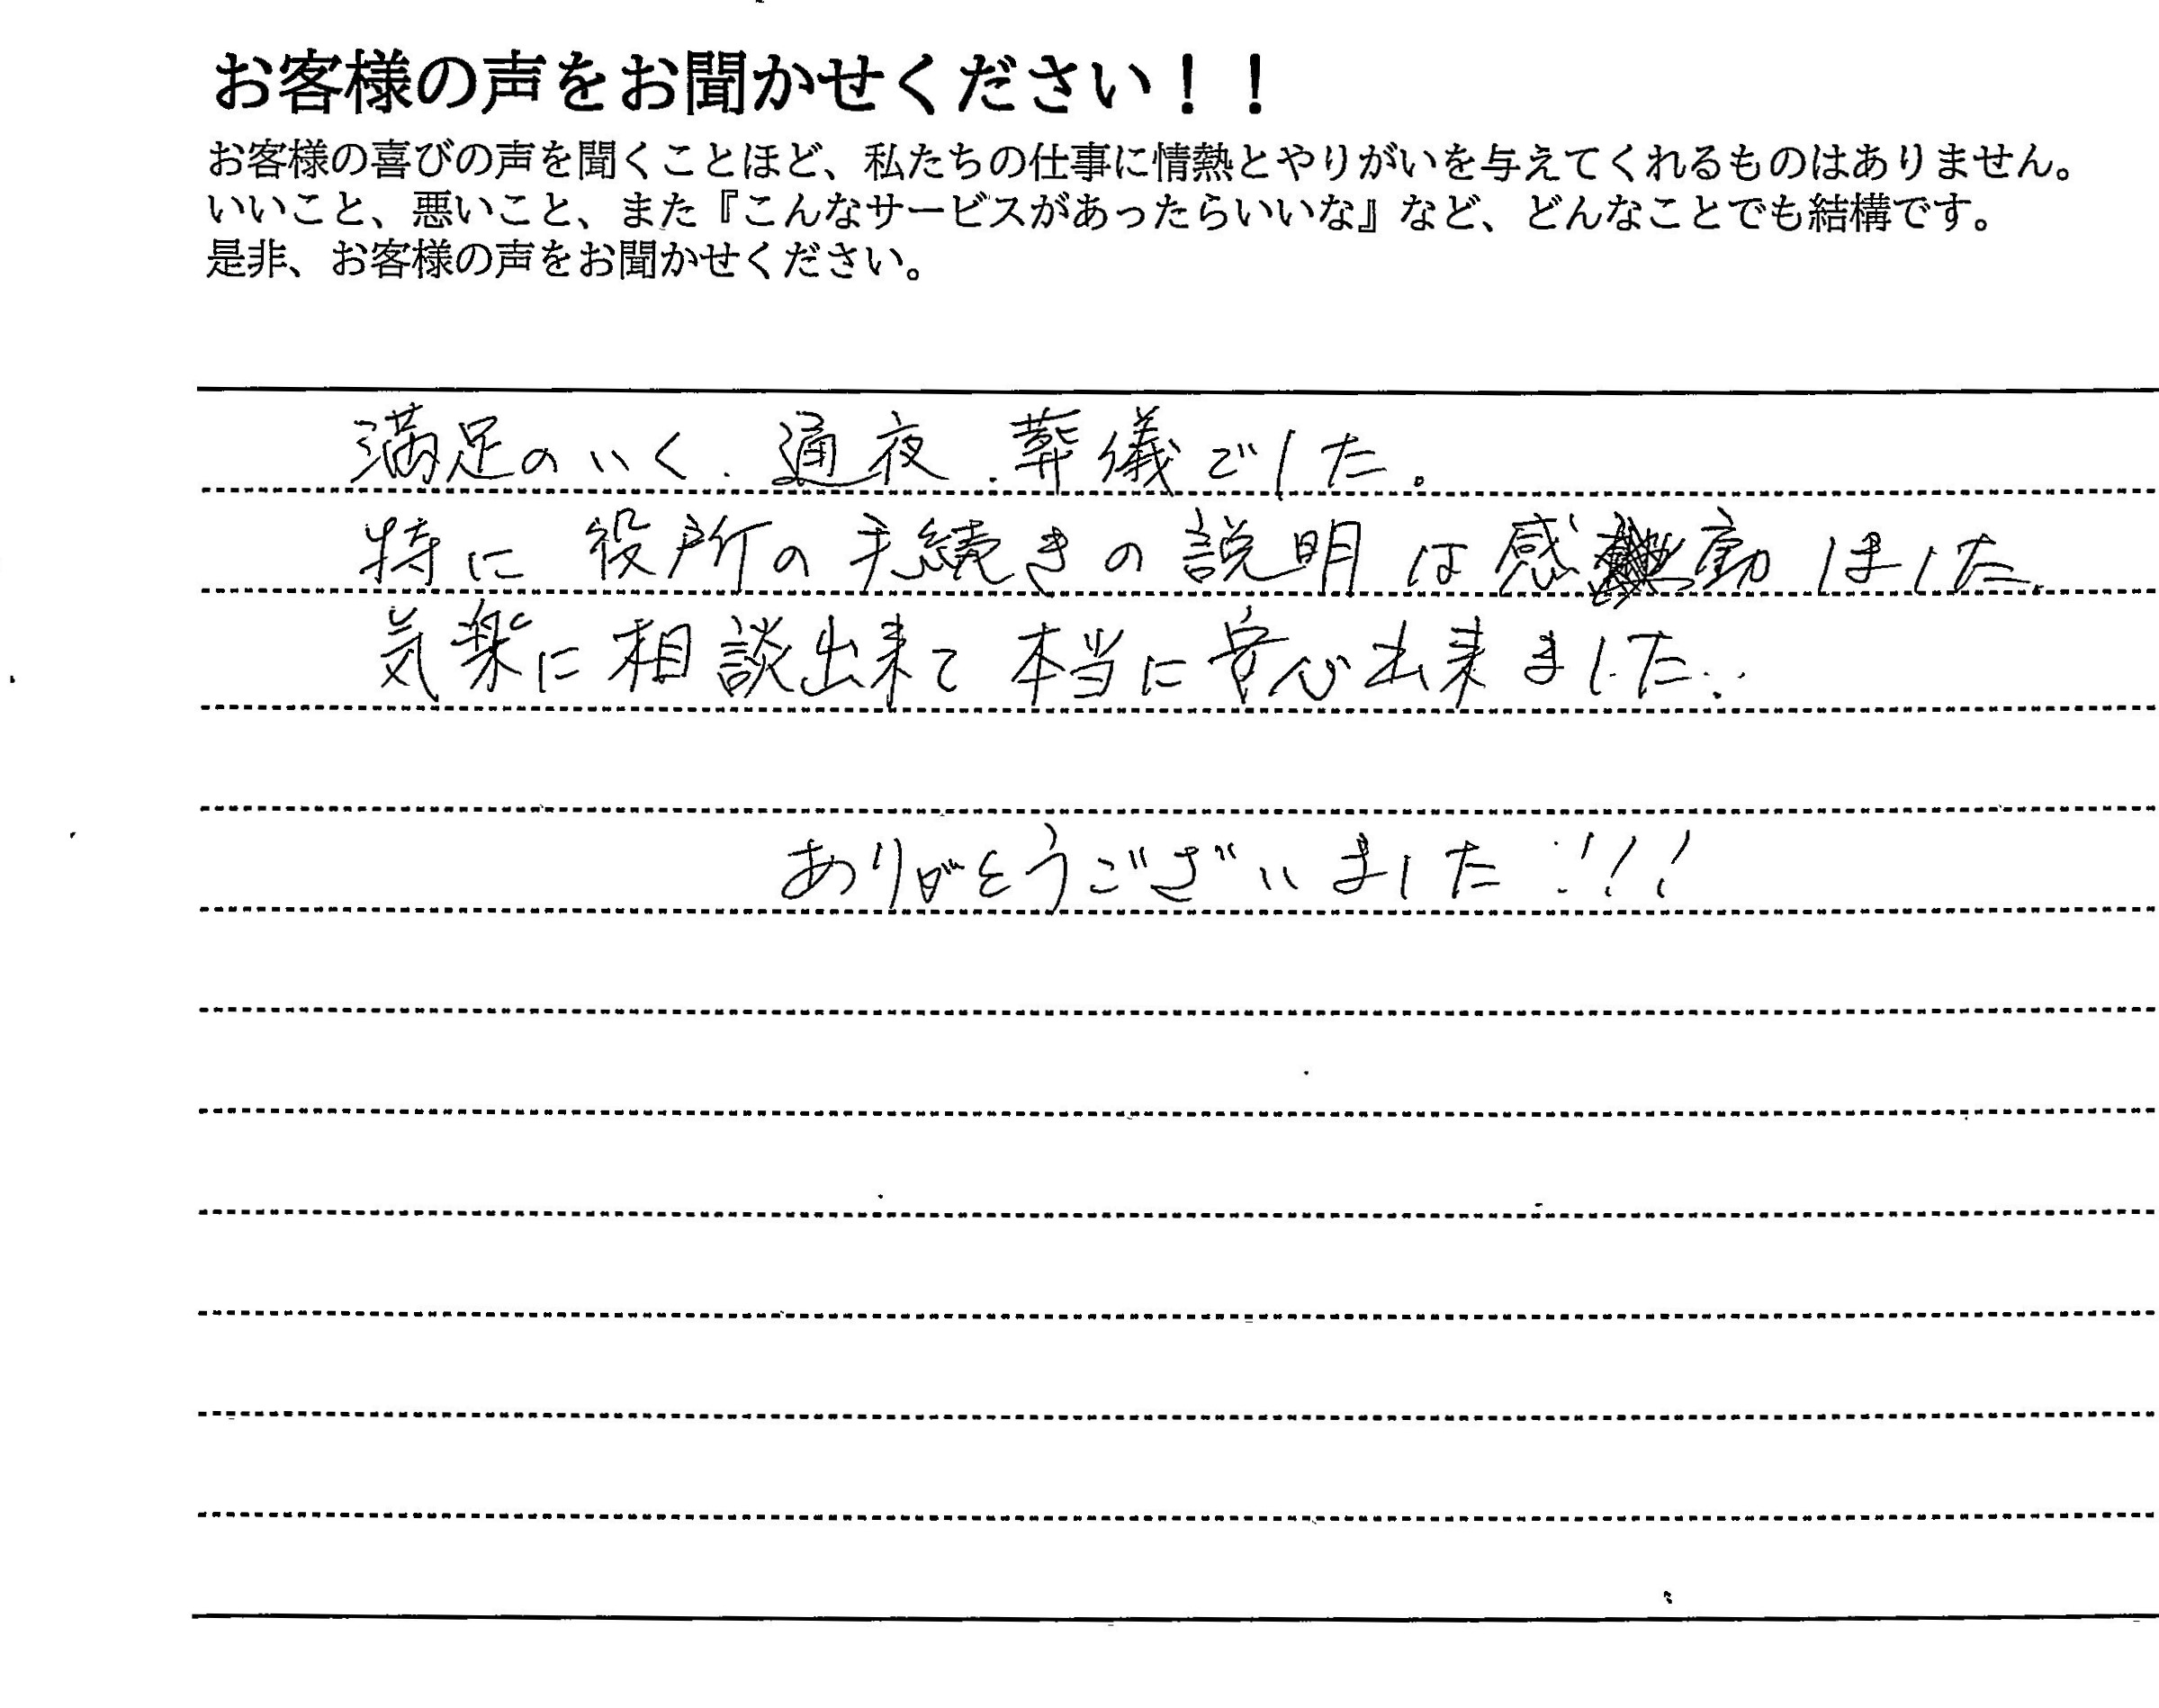 お客様の声をお聞かせください！！
お客様の喜びの声を聞くことほど、私たちの仕事に情熱とやりがいを与えてくれるものはありません。
いいこと、悪いこと、また『こんなサービスがあったらいいな』など、どんなことでも結構です。
是非、お客様の声をお聞かせください。
満足のいく、通夜、葬儀でした。
特に役所の手続きの説明は感動しました。
気楽に相談出来て本当に安心出来ました。
ありがとうございました!!!